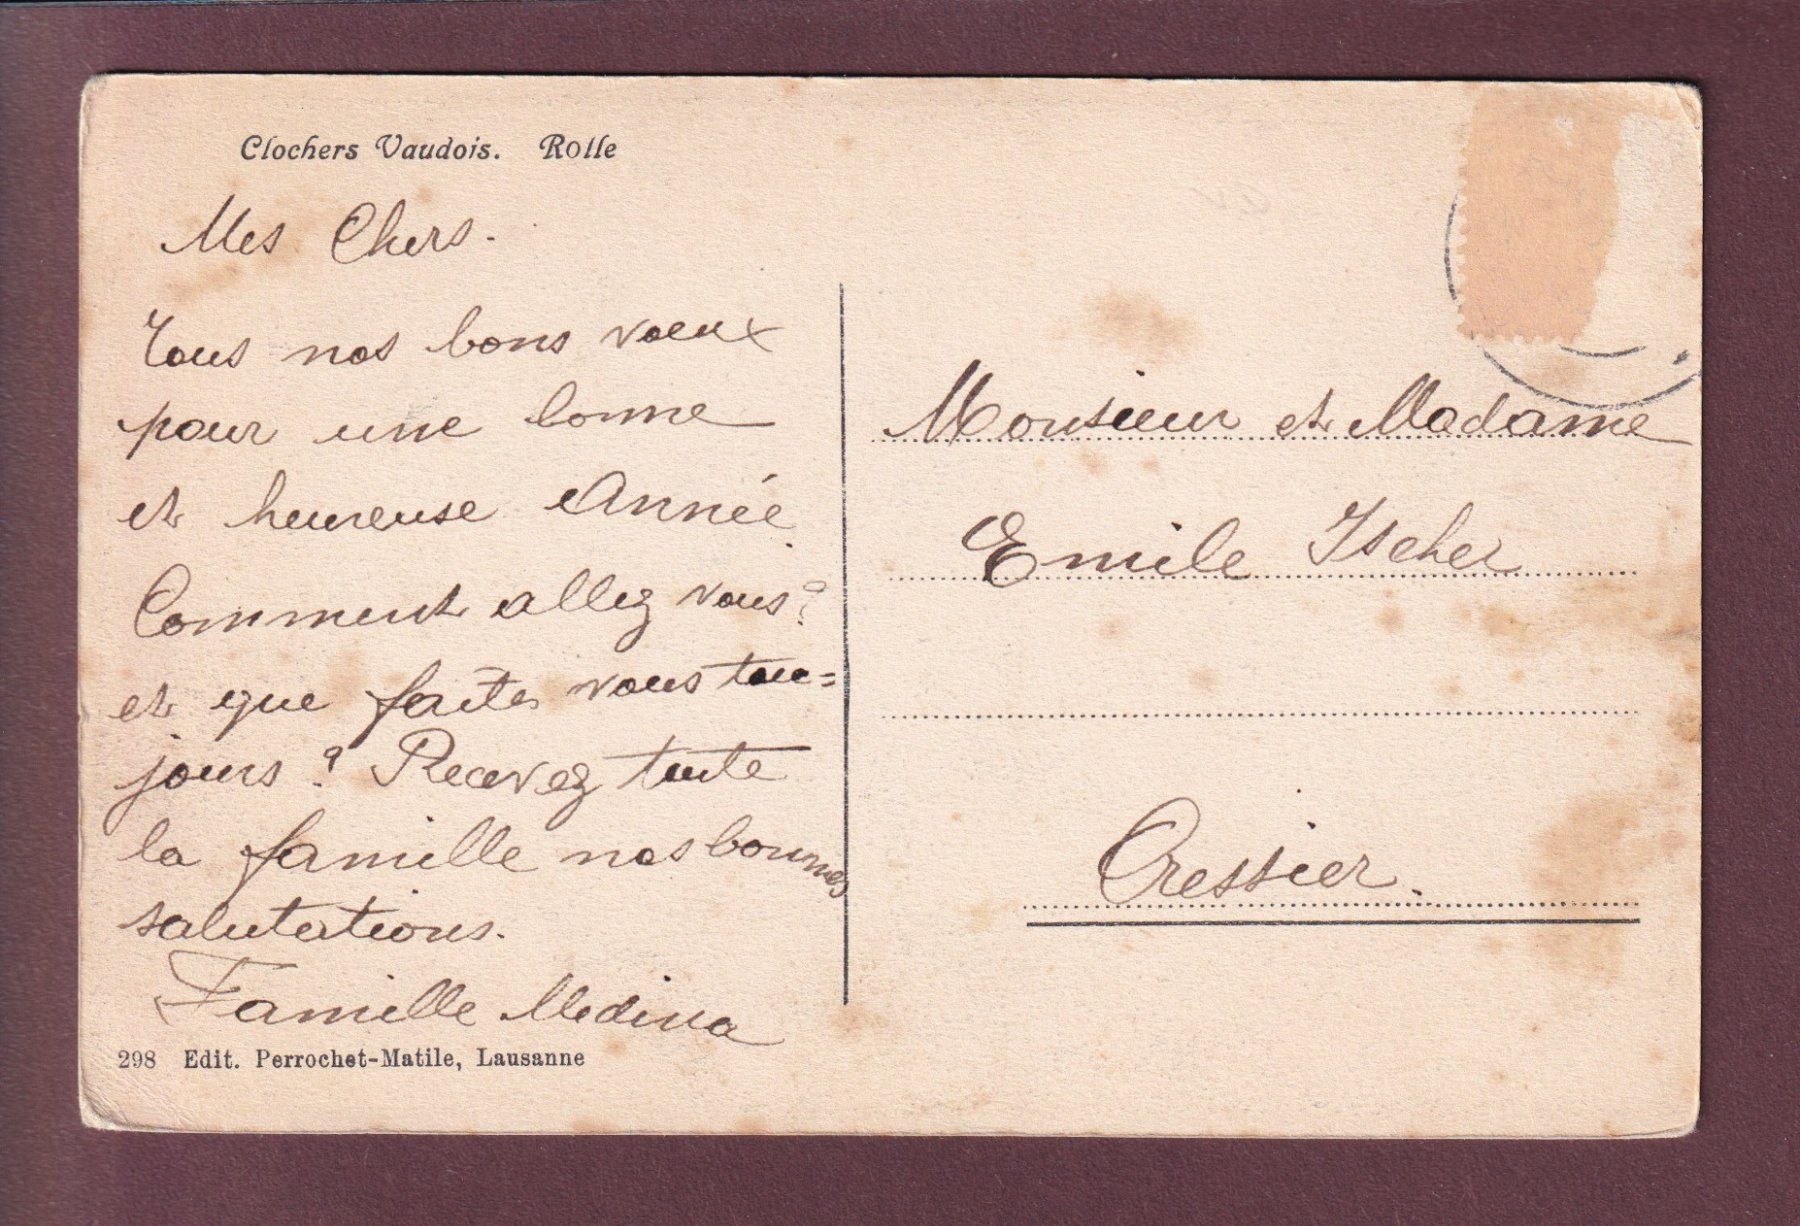 Clochers Vaudois. Rolle
Mes Chers.
Tous nos bons voeux
pour une bonne
et heureuse Année
Comment allez vous?
et que faites vous tou=
jours? Recevez toute
la famille nos bonnes
salutations.
Famille Medina
298 Edit. Perrochet-Matile, Lausanne
Monsieur et Madame
Emile Ischer
Cressier.